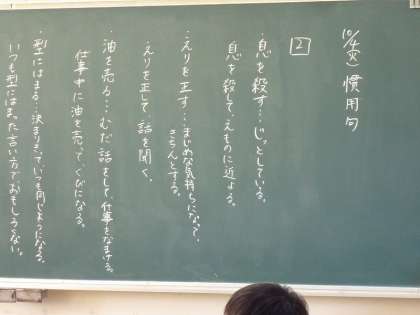 10/4(火) 慣用句
2
・息を殺す…じっとしている。
息を殺して、えものに近よる。
・えりを正す…まじめな気持ちになって、
きちんとする。
えりを正して、話を聞く。
・油を売る…むだ話をして、仕事をなまける。
仕事中に油を売って、くびになる。
・型にはまる…決まりきっていつも同じようになる。
いつも型にはまった言い方でおもしろくない。